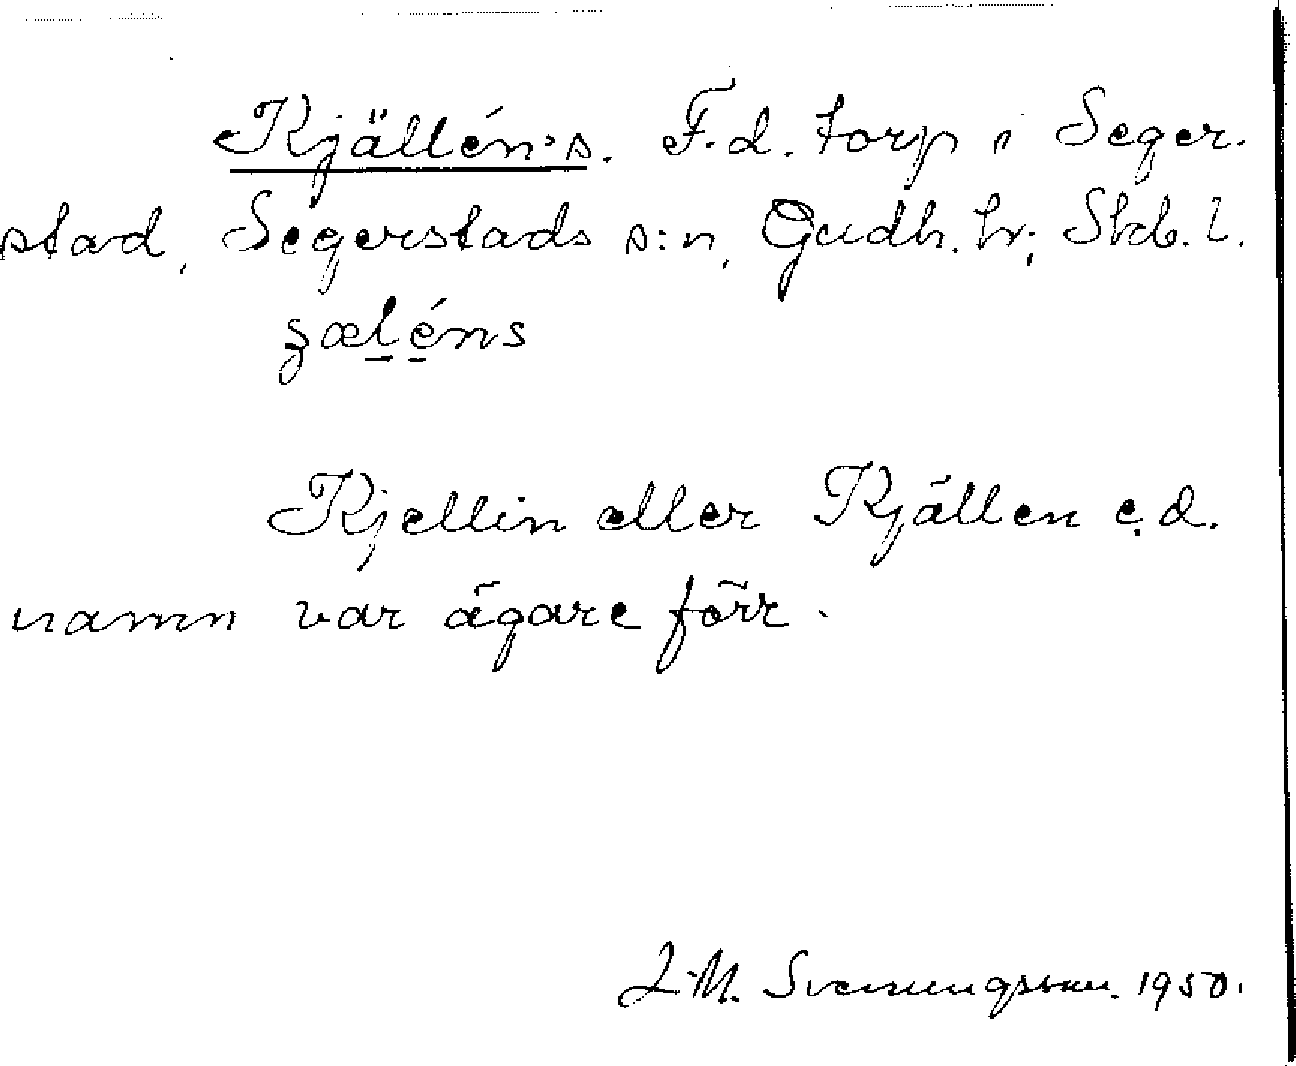 Kjällén:s. F.d. torp i Seger-
stad, Segerstads s:n, Gudh. hr; Skb. l.
ʒæléns
Kjellin eller Kjällen e.d.
namn var ägare förr.
L.M. Svenungsson. 1950.